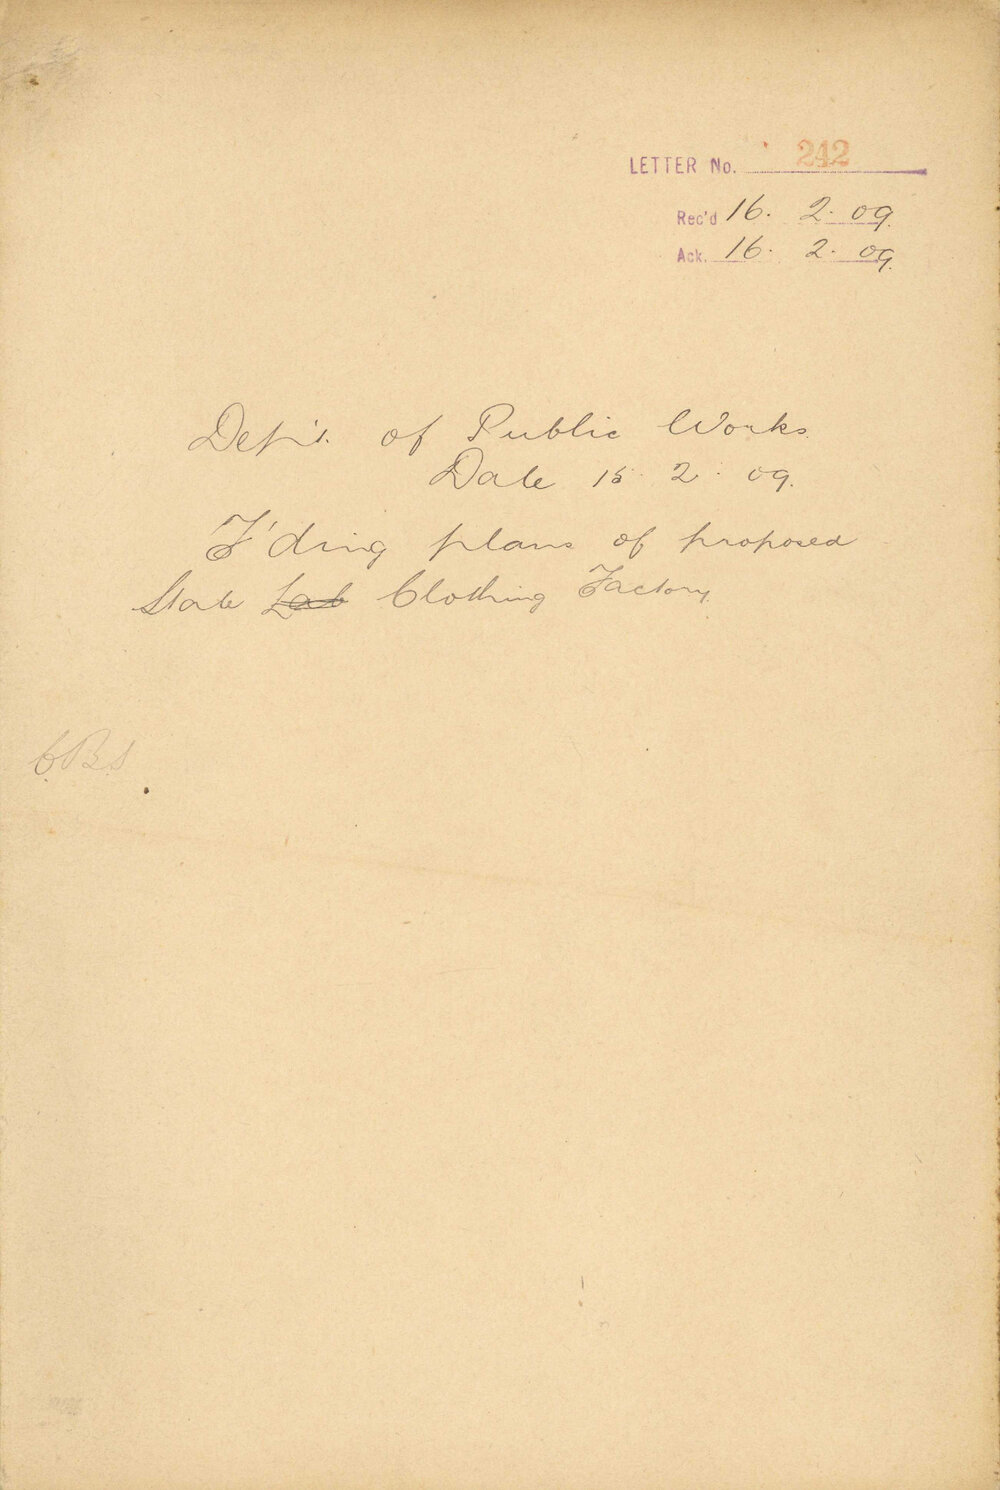 LETTER No. 242
Rec'd 16. 2. 09.
Ack. 16. 2. 09.
Dep't. of Public Works
Date 15. 2. 09.
F'ding plans of proposed
State Lab Clothing Factory.
C.B.S